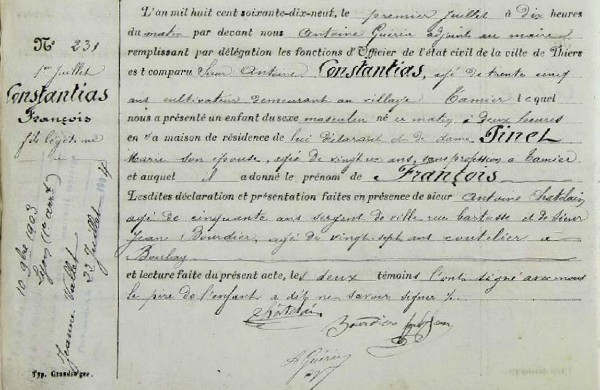 N° 231
1er juillet
Constantias
François
fils légitime
10 9bre 1903
Lyon
Jeanne Vallet
23 Juillet
L'an mil huit cent soixante-dix-neuf, le premier juillet à Dix heures
du matin par devant nous Antoine Guérin adjoint au maire
remplissant par délégation les fonctions d'Officier de l'état civil de la ville de Thiers
est comparu Sieur Antoine Constantias, agé de trente neuf
ans cultivateur demeurant au village Tamier lequel
nous a présenté un enfant du sexe masculin né ce matin à deux heures
en sa maison de résidence de lui déclarant et de dame Pinel
Marie son épouse, agée de vingt huit ans, sans profession à Tamier
et auquel il a donné le prénom de François
Lesdites déclaration et présentation faites en présence de sieur Antoine Chatelain
agé de cinquante ans sergent de ville rue et de sieur
Jean Bourdier, agé de vingt sept ans coutelier à
Boulay
et lecture faite du présent acte, les deux témoins l'ont signé avec nous
le père de l'enfant a dit ne savoir signer ./.
Chatelain
Bourdier
A Guérin
Typ. Grandsaigne.